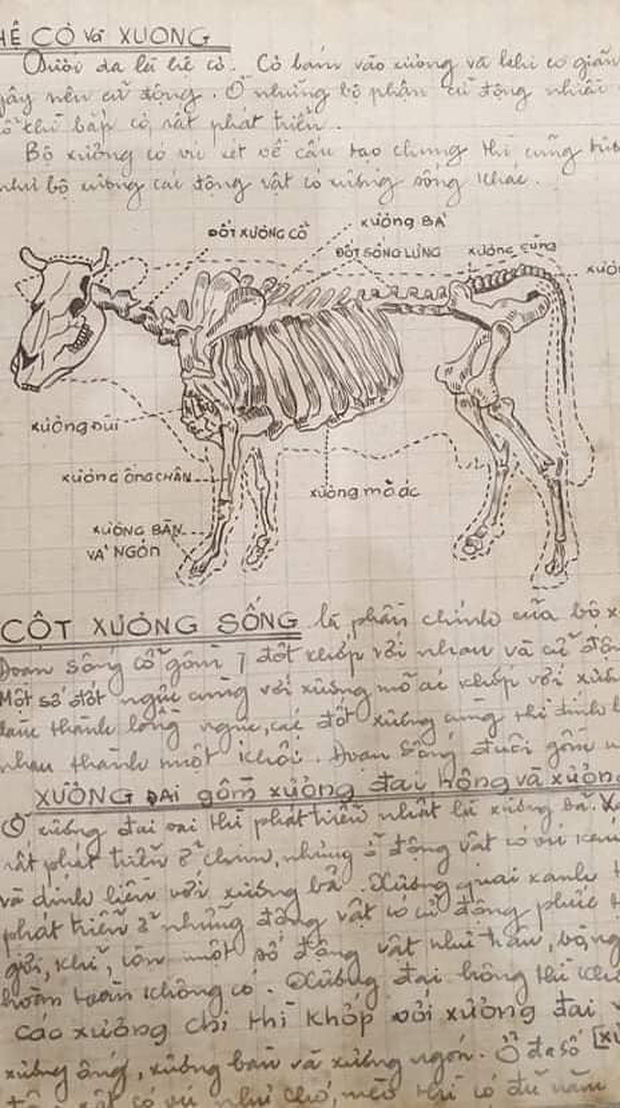 HỆ CỎ Và XƯƠNG
Dưới da là hệ cỏ. Cỏ bám vào xương và khi cơ giãn
gây nên cử động. Ở những bộ phận cử động nhiều
cổ thì bắp cỏ rất phát triển.
Bộ xương có vú xét về cấu tạo chung thì cũng
như bộ xương các động vật có xương sống khác.
XƯƠNG BẢ
ĐỐT XƯƠNG CỔ
ĐỐT SỐNG LƯNG
XƯƠNG CÙNG
XƯƠ
XƯƠNG ĐÙI
XƯƠNG ỐNG CHÂN
XƯƠNG MỎ ÁC
XƯƠNG BÀN
VÀ NGÓN
CỘT XƯƠNG SỐNG là phần chính của bộ x
Đoạn sống cổ gồm 7 đốt khớp với nhau và cử độ
Một số đốt ngực cùng với xương mỏ ác khớp với xươ
làm thành lồng ngực, các đốt xương cùng thì dính l
nhau thành một khối. Đoạn sống đuôi gồm
XƯƠNG ĐAI gồm xương đai hông và xương
Ở xương đai vai thì phát triển nhất là xương bả. X
rất phát triển ở chim, nhưng ở động vật có vú kém
và dính liền với xương bả. Xương quai xanh
phát triển ở những động vật có cử động phức
giơi, khỉ, còn một số động vật như trâu, bò, ng
hoàn toàn không có. Xương đai hông thì
Các xương chi thì khớp với xương đai
xương ống, xương bàn và xương ngón. Ở đa số [xư
động vật có vú như chó, mèo thì có đủ năm